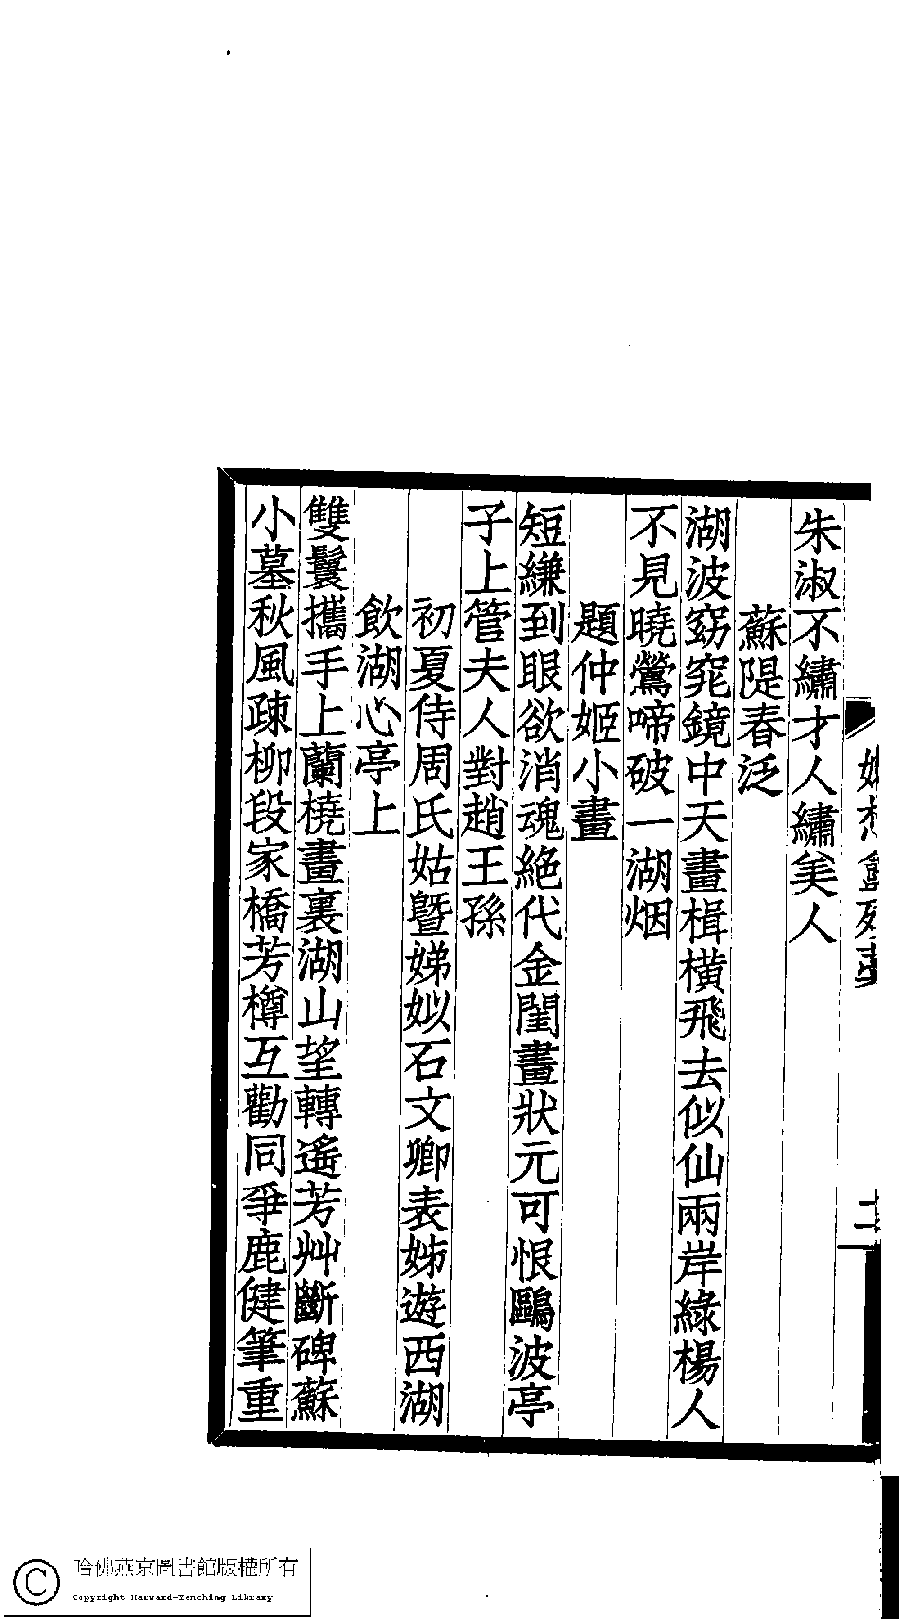 朱淑不繡才人繡美人
蘇隄春泛
湖波窈窕鏡中天畫楫橫飛去似仙兩岸綠楊人
不見曉鶯啼破一湖烟
題仲姬小畫
短縑到眼欲消魂絕代金閨畫狀元可恨鷗波亭
子上管夫人對趙王孫
初夏侍周氏姑曁娣姒石文卿表姊遊西湖
飲湖心亭上
雙鬟攜手上蘭橈畫裏湖山望轉遙芳艸斷碑蘇
小墓秋風疎柳段家橋芳樽互勸同爭鹿健筆重
哈佛燕京圖書館版權所有
Copyright Harvard-Yenching Library